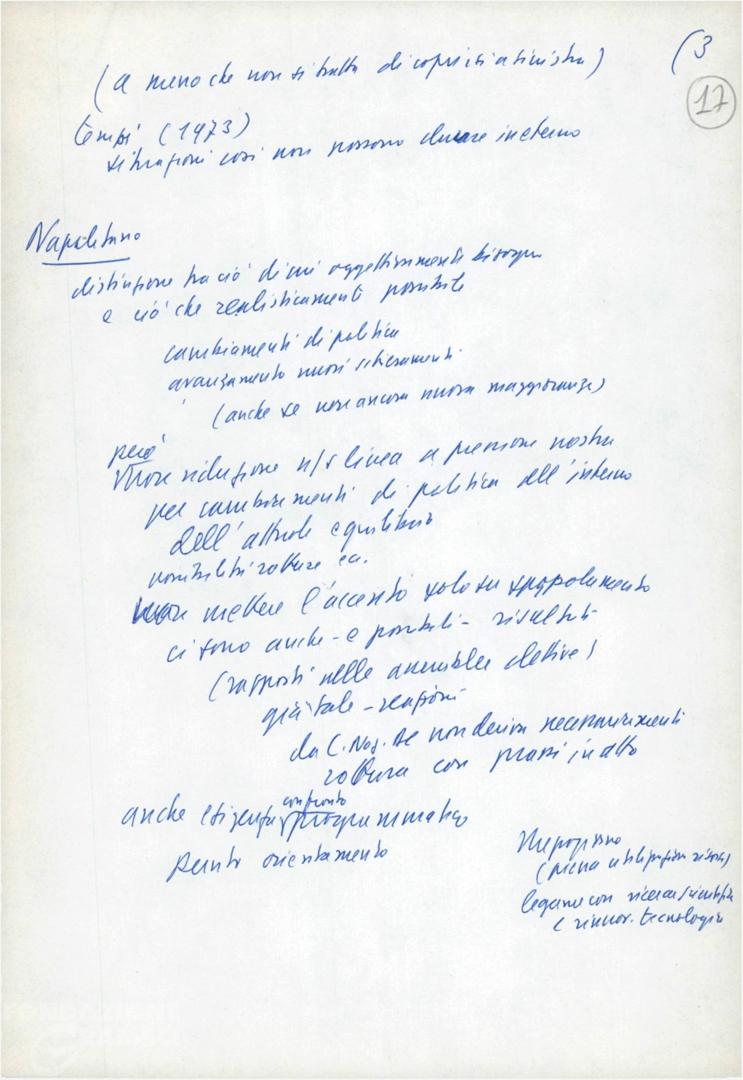 (3
17
(a meno che non si tratta di crisi a sinistra)
tempi (1973)
situazioni così non possono durare in eterno
Napolitano
distinzione tra ciò di cui oggettivamente bisogna
e ciò che realisticamente possibile
cambiamenti di politica
avanzamento nuovi schieramenti
(anche se non ancora nuova maggioranza)
però
non riduzione n/s linea a pressione nostra
per cambiamenti di politica all'interno
dell'attuale equilibrio
possibilità rotture ecc.
non mettere l'accento solo su
ci sono anche - e possibili - risultati
(rapporti nelle assemblee elettive)
già tale - reazioni
da C. Naz. DC non deriva necessariamente
rottura con prassi in atto
anche esigenza confronto programmatico
punto orientamento
Mezzogiorno
(piena utilizzazione risorse)
legame con ricerca scientifica
e rinnov. tecnologico